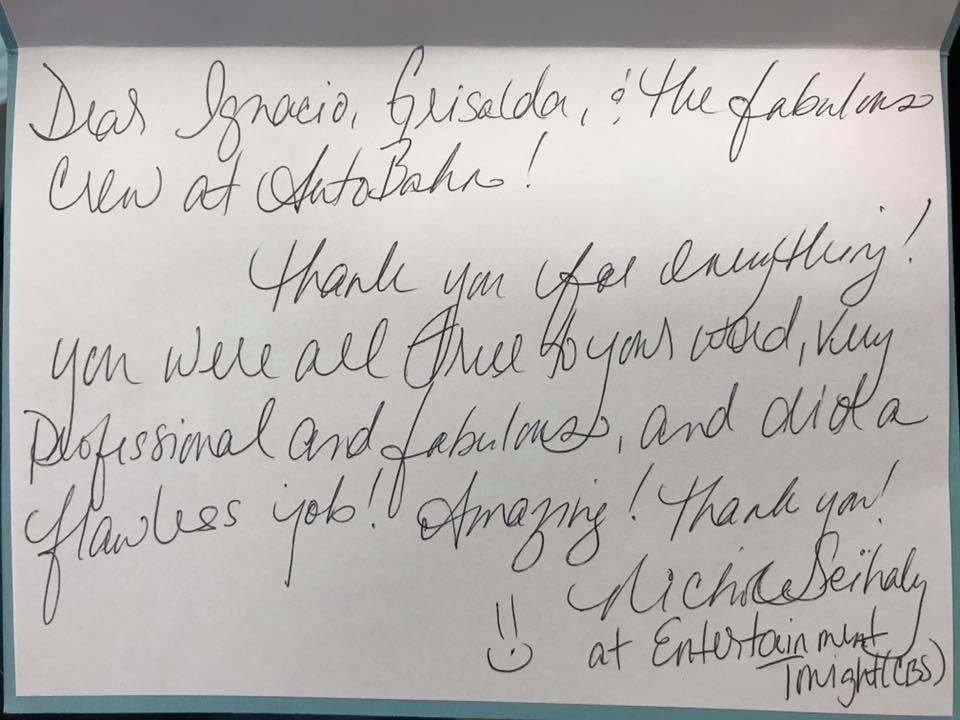 Dear Ignacio, Griselda, & the fabulous
Crew at AutoBahn!
Thank you for everything!
you were all true to your word, very
professional and fabulous, and did a
flawless job! Amazing! Thank you!
Nichole
at Entertainment
Tonight (CBS)